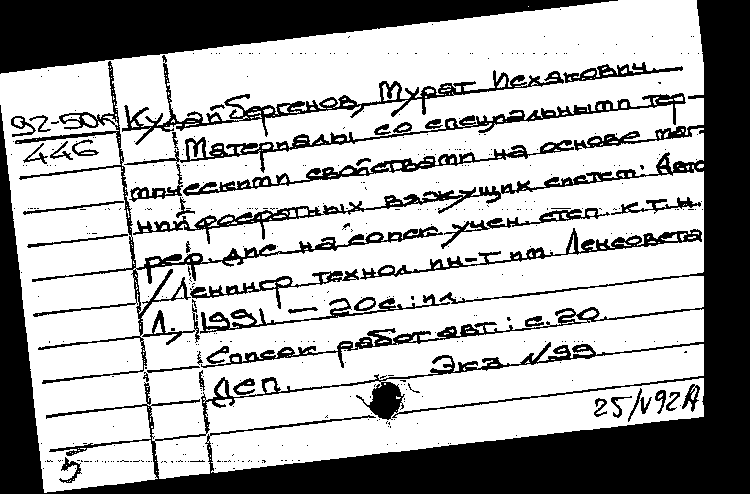 92-50к Кудайбергенов, Мурат Исхакович
446 Материалы со специальными тер-
мическими свойствами на основе маг-
нийфосфатных вяжущих систем: Авто
реф. дис. на соиск. учен. степ. к.т.н.
/ Ленингр. технол. ин-т им. Ленсовета
Л., 1991. — 20с.: ил.
Список работ авт.: с.20.
Деп. Экз. N99
25/V92
5